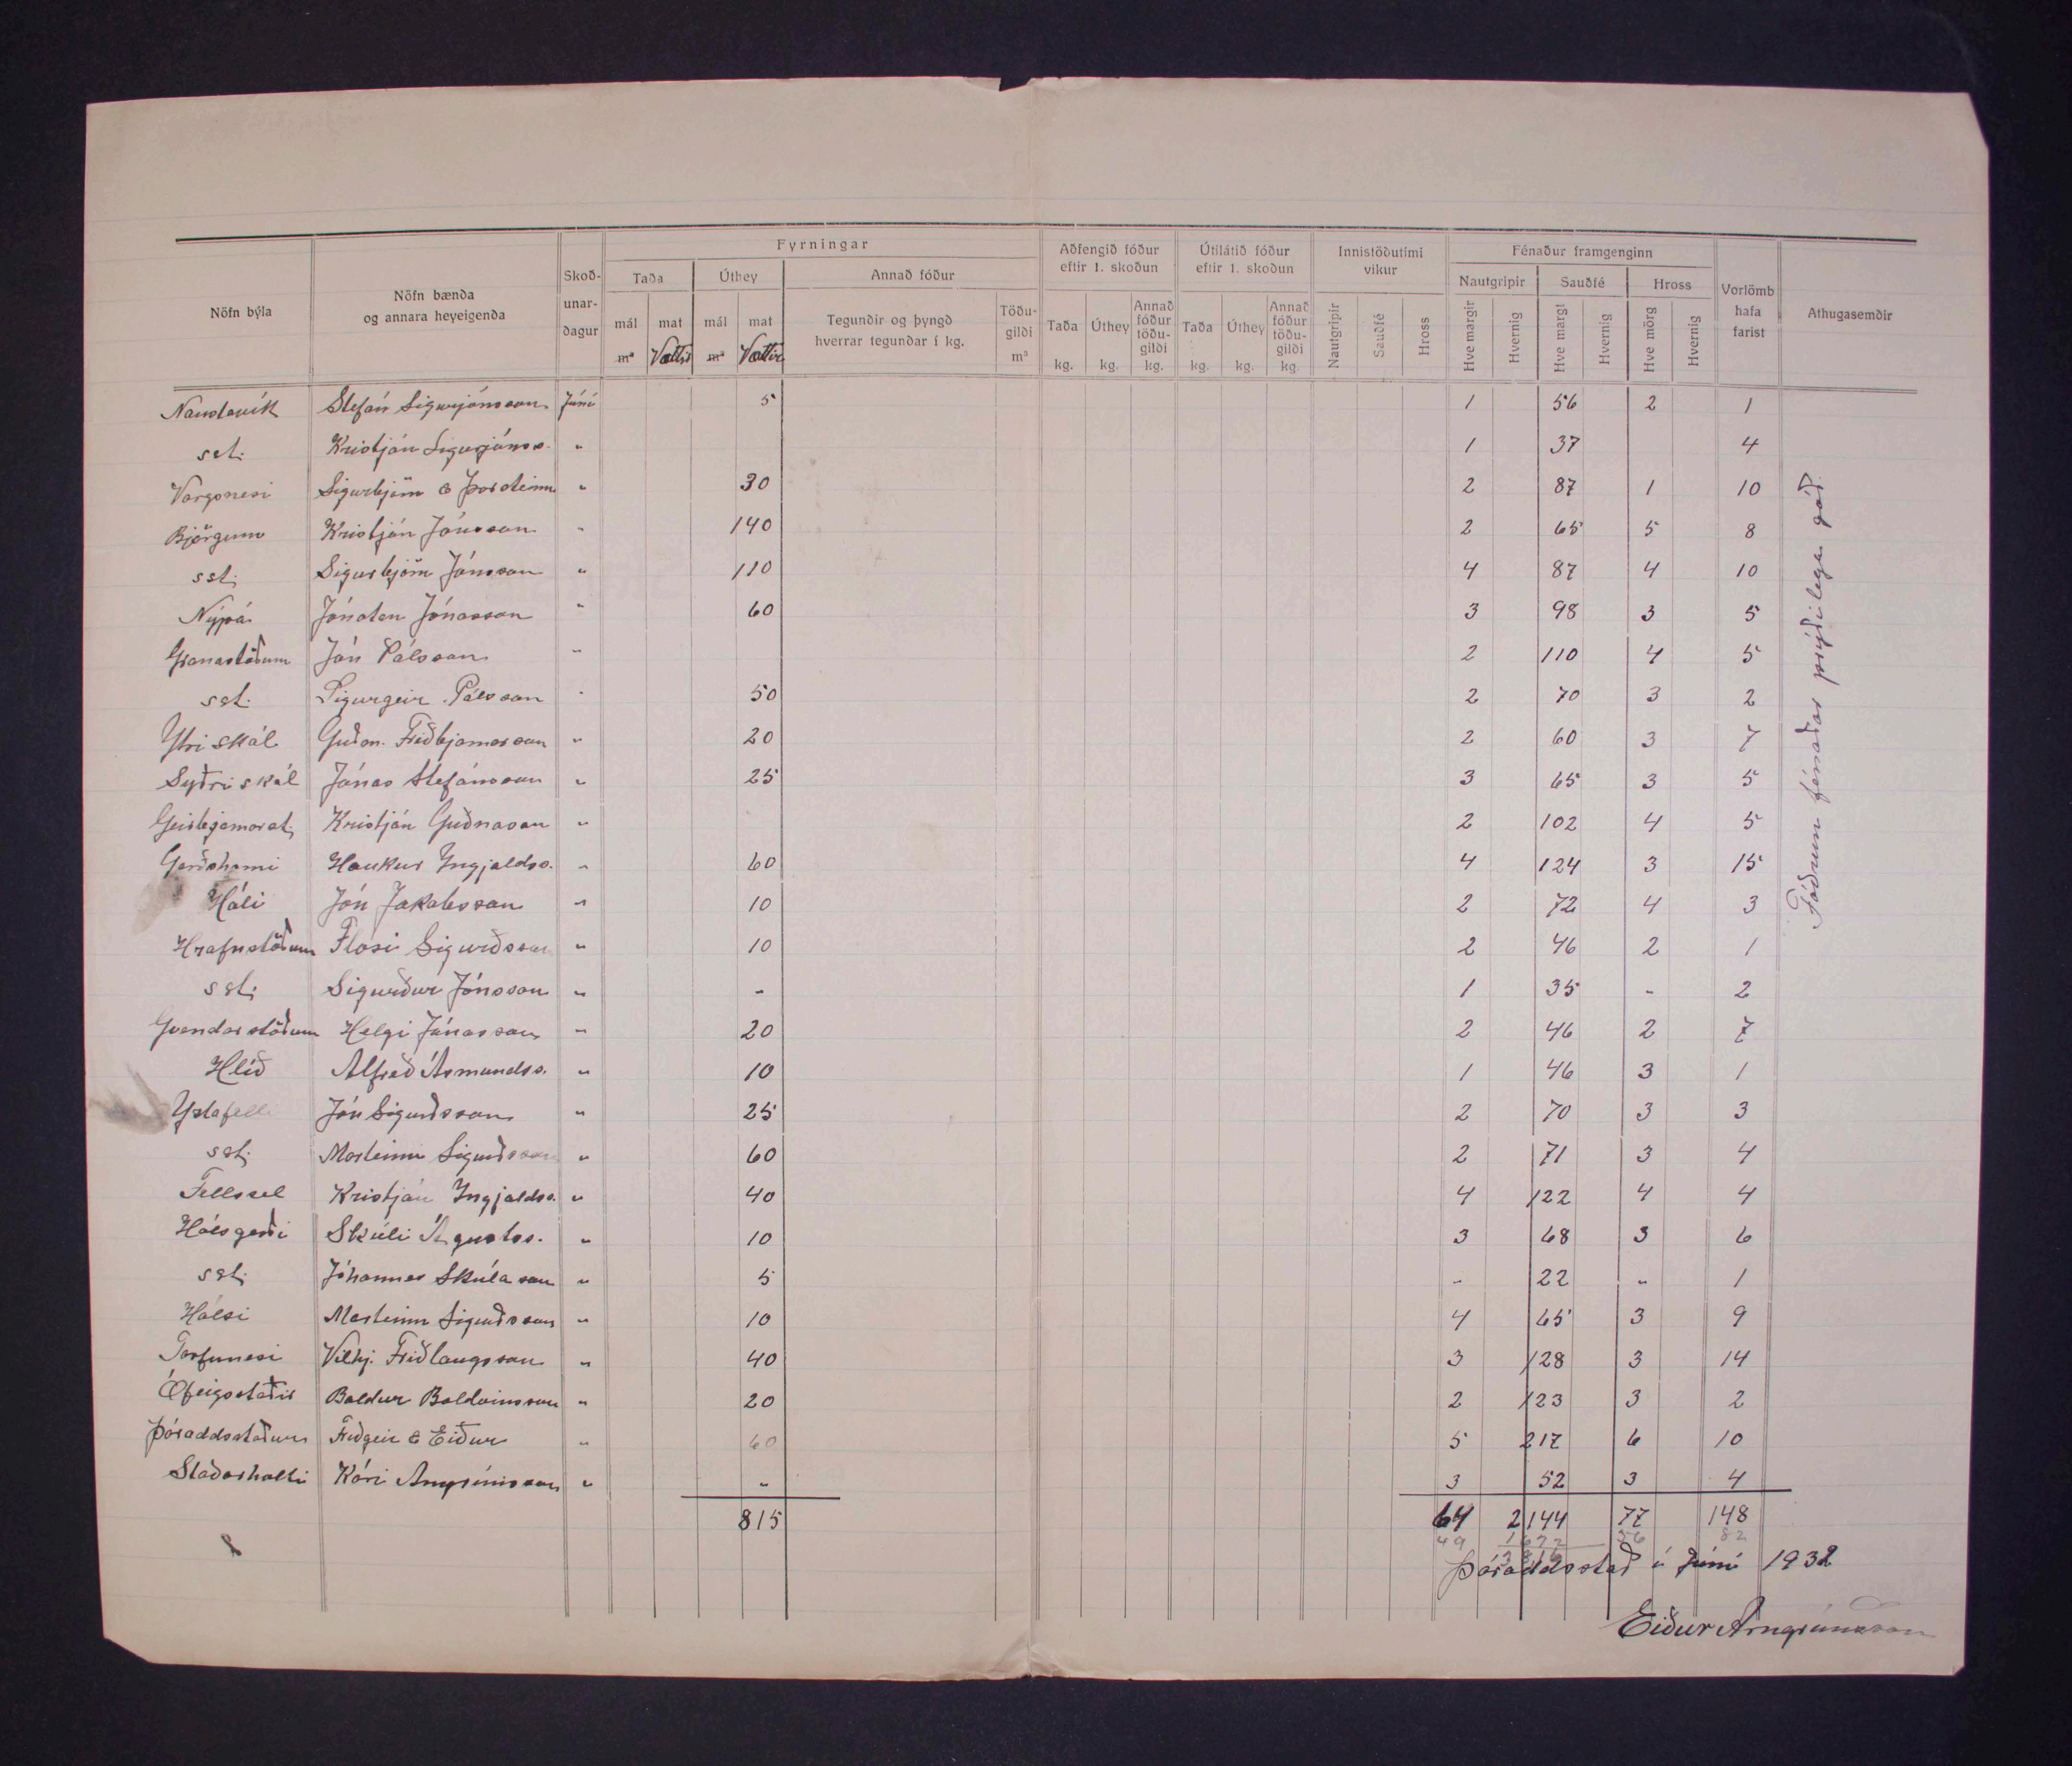 Fyrningar
Aðfengið fóður eftir 1. skoðun
Útilátið fóður eftir 1. skoðun
Innistöðutími vikur
Fénaður framgenginn
Nöfn býla
Nöfn bænda og annara heyeigenda
Skoð-unar-dagur
Taða
Úthey
Annað fóður
Nautgripir
Sauðfé
Hross
Vorlömb hafa farist
Athugasemdir
mál m³
mat Vættir
mál m³
mat Vættir
Tegundir og þyngd hverrar tegundar í kg.
Töðu-gildi m³
Taða kg.
Úthey kg.
Annað fóður töðu-gildi kg.
Taða kg.
Úthey kg.
Annað fóður töðu-gildi kg.
Nautgripir
Sauðfé
Hross
Hve margir
Hvernig
Hve margt
Hvernig
Hve mörg
Hvernig
Naustavík Stefán Sigurjónsson Júní 5 1 56 2 1
sst. Kristján Sigurjónss. " 1 37 4
Vargsnesi Sigurbjörn & Þorsteinn " 30 2 87 1 10
Björgum Kristján Jónsson " 140 2 65 5 8
sst. Sigurbjörn Jónsson " 110 4 87 4 10
Nýpá Jónatan Jónasson " 60 3 98 3 5
Granastöðum Jón Pálsson " 2 110 4 5
sst. Sigurgeir Pálsson " 50 2 70 3 2
Ytri skál Guðm. Friðbjarnarson " 20 2 60 3 7
Syðri skál Jónas Stefánsson " 25 3 65 3 5
Geirbjarnarst. Kristján Guðnason " 2 102 4 5
Garðshorni Haukur Ingjaldss. " 60 4 124 3 15
Háli Jón Jakobsson " 10 2 72 4 3
Hrafnstöðum Flosi Sigurðsson " 10 2 46 2 1
sst. Sigurður Jónsson " - 1 35 - 2
Gvendarstöðum Helgi Jónasson " 20 2 46 2 7
Hlíð Alfreð Ásmundss. " 10 1 46 3 1
Ystafelli Jón Sigurðsson " 25 2 70 3 3
sst. Marteinn Sigurðsson " 60 2 71 3 4
Fellssel Kristján Ingjaldss. " 40 4 122 4 4
Hálsgerði Skúli Ágústss. " 10 3 68 3 6
sst. Jóhannes Skúlason " 5 - 22 - 1
Hálsi Marteinn Sigurðsson " 10 4 65 3 9
Torfunesi Vilhj. Friðlaugsson " 40 3 128 3 14
Ófeigsstaðir Baldur Baldvinsson " 20 2 123 3 2
Þóroddsstaðum Friðgeir & Eiður " 60 5 217 6 10
Staðarholti Kári Arngrímsson " - 3 52 3 4
815 64 2144 77 148
49 1672 56 82
3816
Fóðrun fénaðar prýðilega góð.
Þóroddsstað í Júní 1932
Eiður Arngrímsson